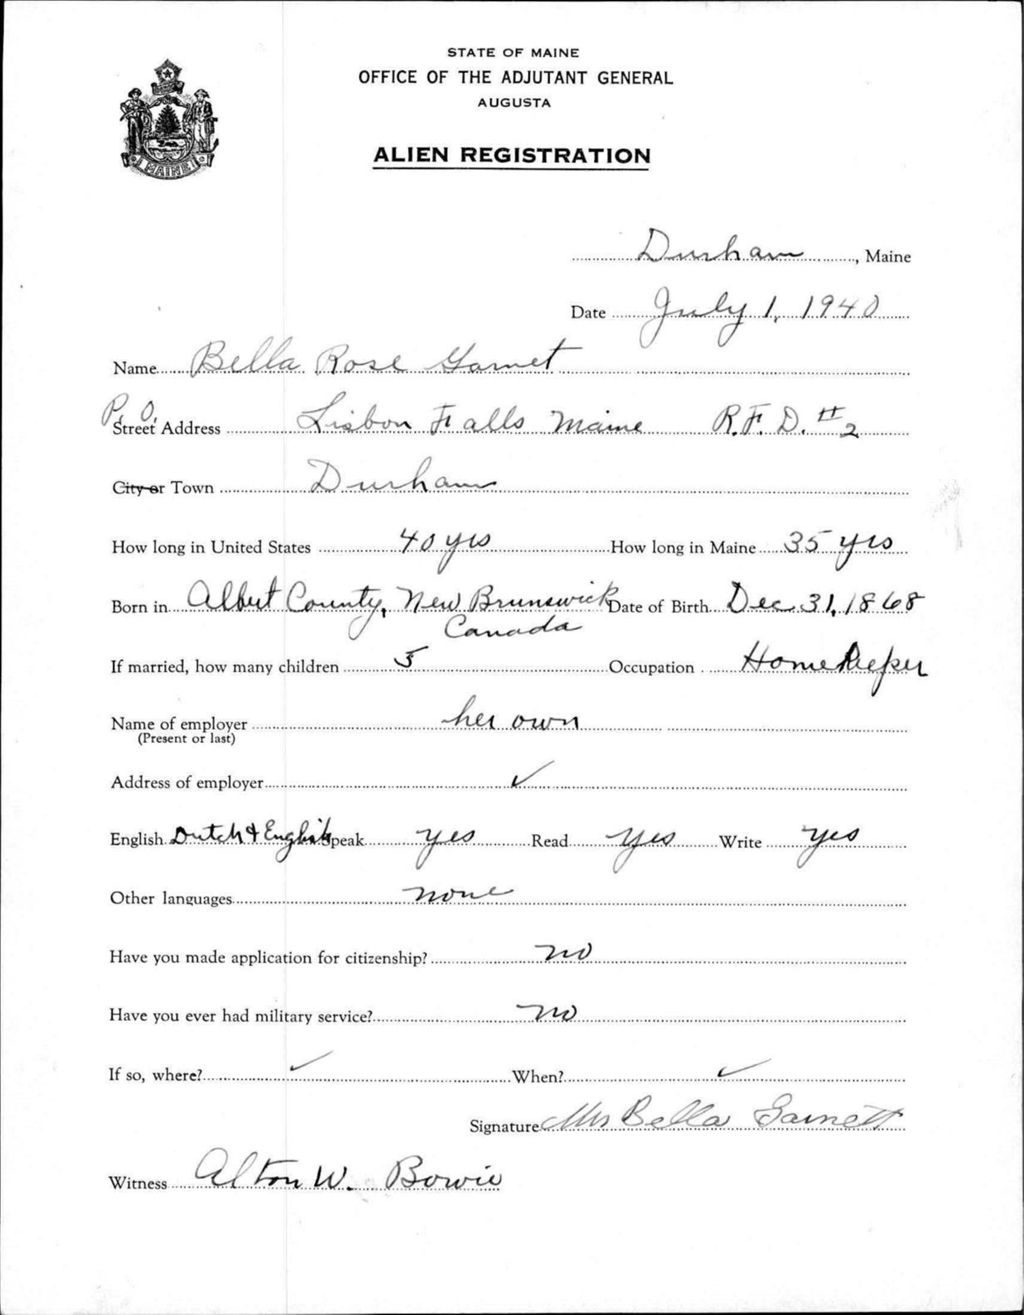 STATE OF MAINE
OFFICE OF THE ADJUTANT GENERAL
AUGUSTA
ALIEN REGISTRATION
MAINE
Durham, Maine
Date July 1, 1940
Name Bella Rose Garnet
P. O.
Street Address Lisbon Falls Maine R.F.D. #2
City or Town Durham
How long in United States 40 yrs How long in Maine 35 yrs
Born in Albert County, New Brunswick Date of Birth Dec. 31, 1868
Canada
If married, how many children 5 Occupation HomeKeeper
Name of employer her own
(Present or last)
Address of employer ✓
English Dutch & English Speak yes Read yes Write yes
Other languages none
Have you made application for citizenship? no
Have you ever had military service? no
If so, where? ✓ When? ✓
Signature Mrs Bella Garnett
Witness Alton W. Bowie